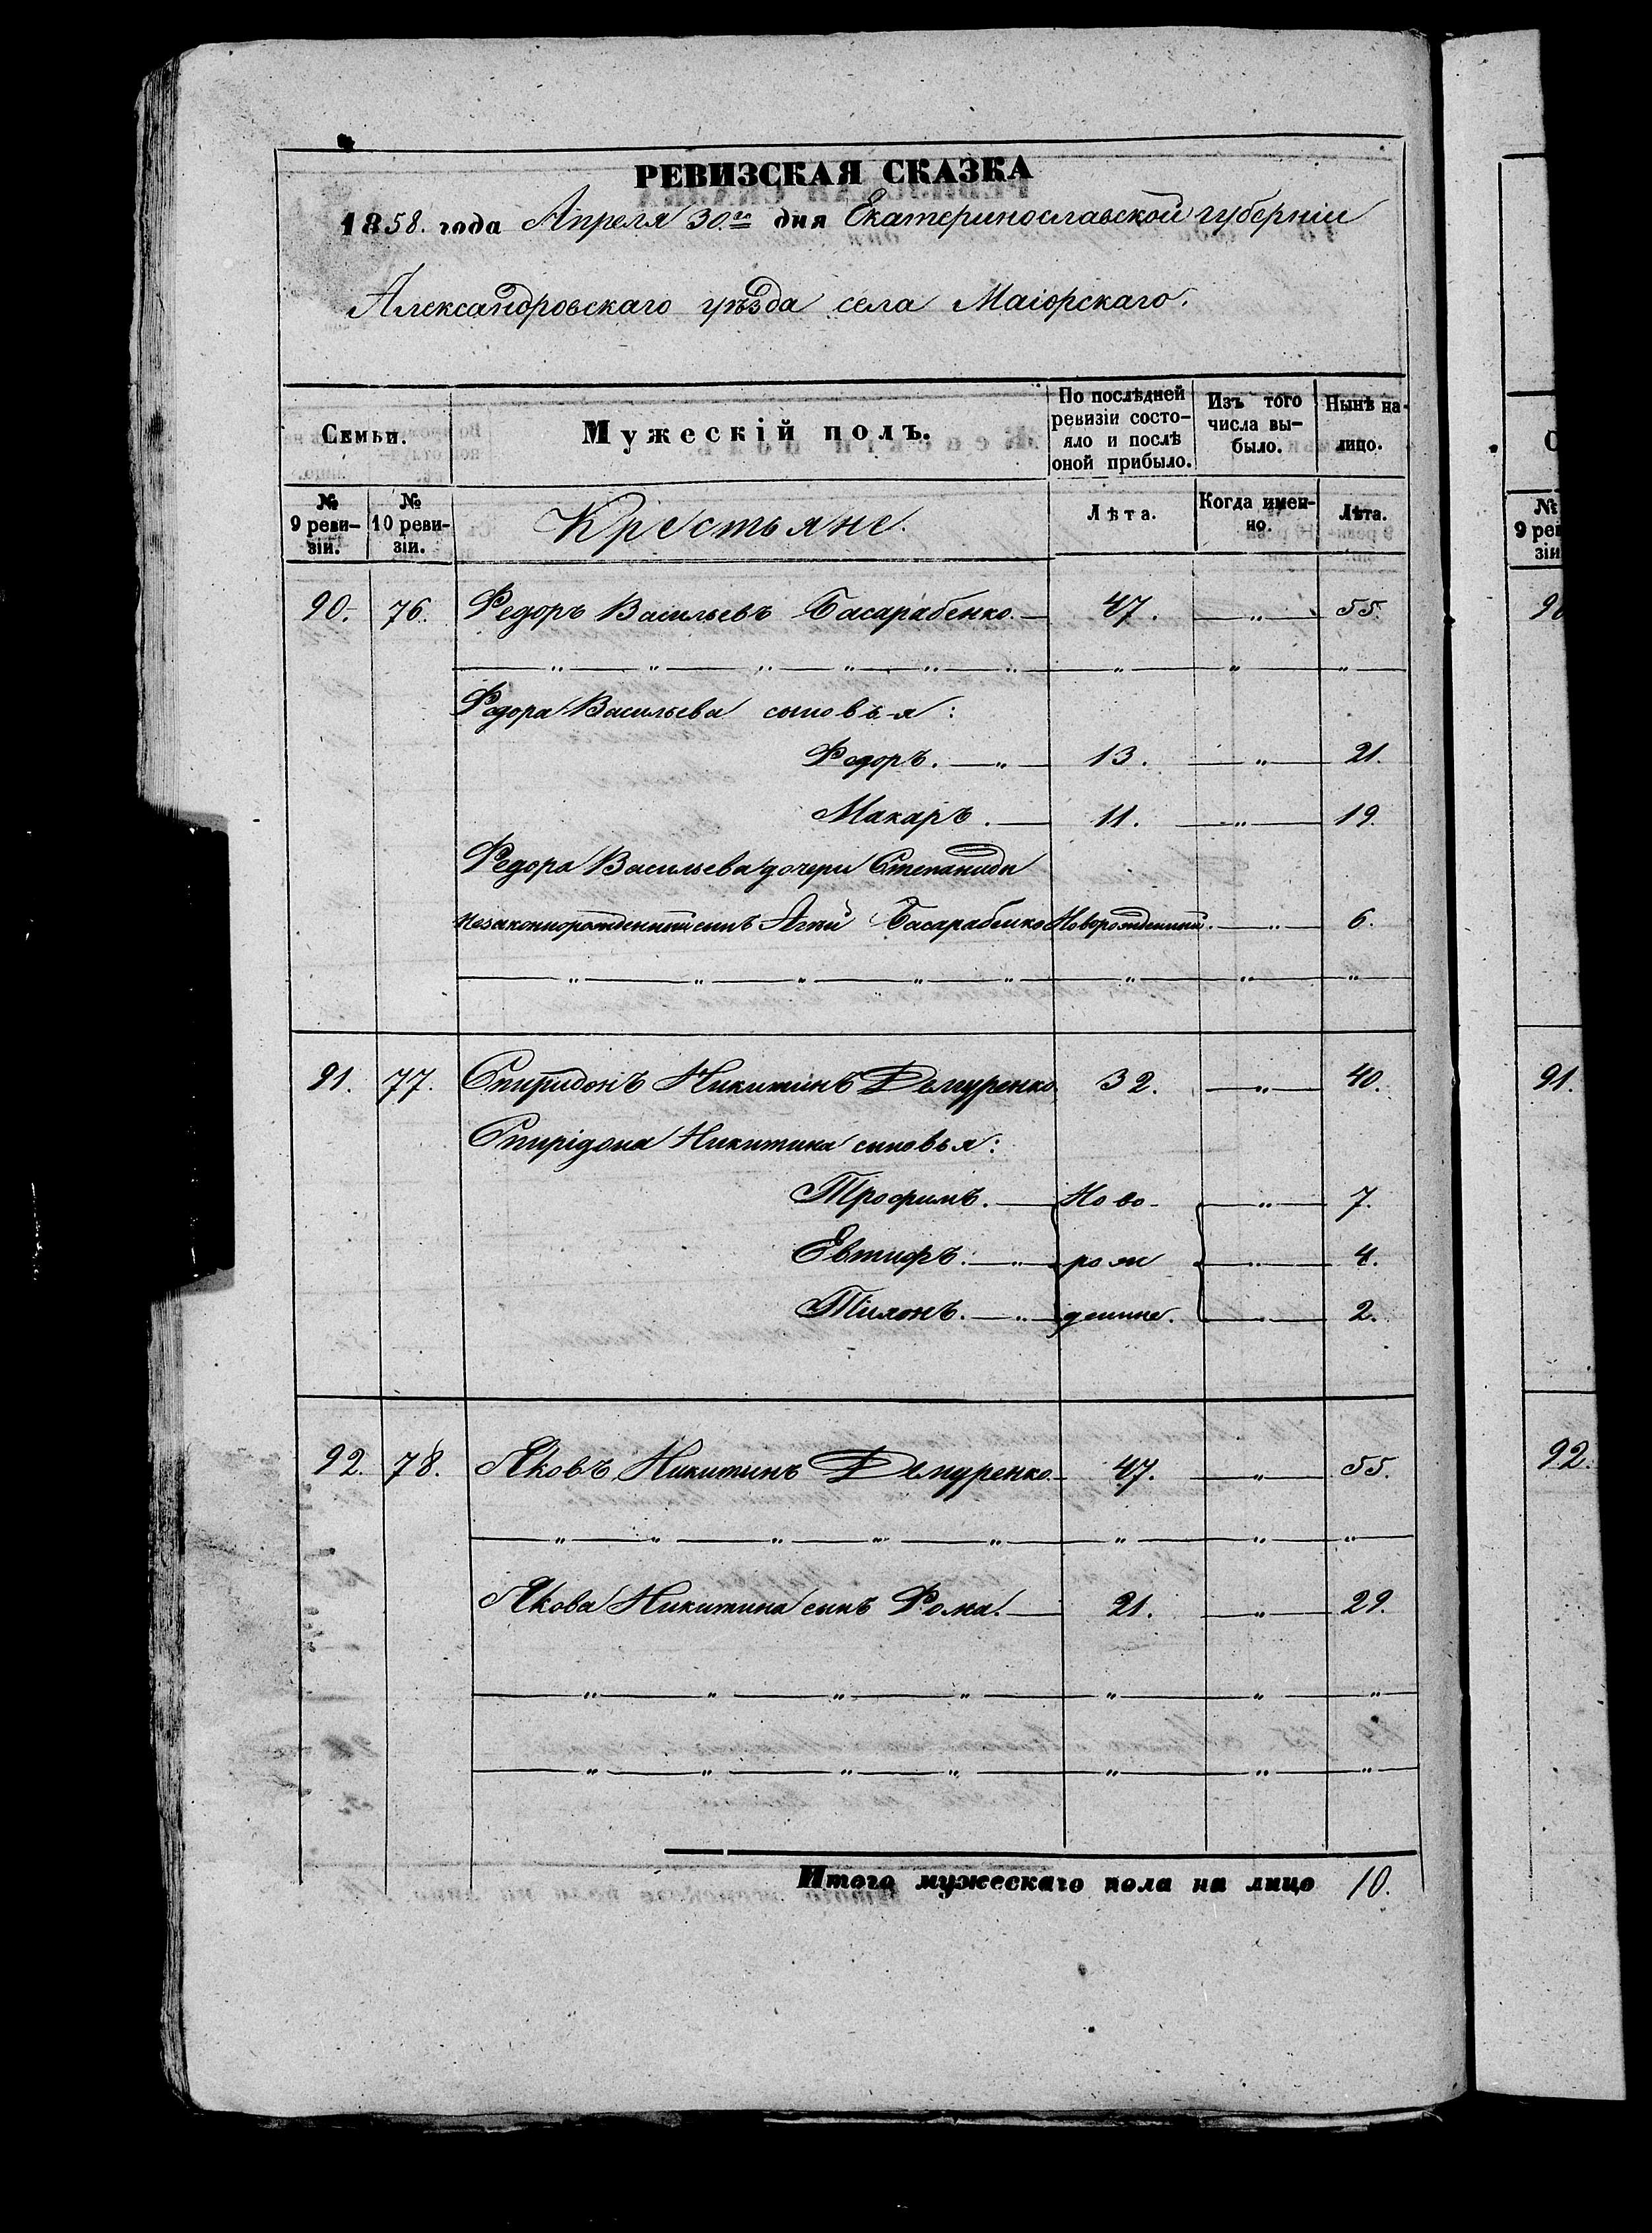 РЕВИЗСКАЯ СКАЗКА
1858. года Апреля 30.го дня Екатеринославской губерніи
Александровскаго уѣзда села Маіорскаго.
Семьи.
Мужескій полъ.
По послѣдней ревизіи состо-яло и послѣ оной прибыло.
Изъ того числа вы-было.
Нынѣ на-лицо.
№ 9 реви-зіи.
№ 10 реви-зіи.
Крестьяне.
Лѣта.
Когда имен-но.
Лѣта.
90. 76. Федоръ Васильевъ Басарабенко. — 47. — „ — 55.
Федора Васильева сыновья:
Федоръ. — „ — 13. — „ — 21.
Макаръ. — 11. — „ — 19.
Федора Васильева дочери Степаниды
незаконнорожденный сынъ Басарабенко Новорожденный. — „ — 6.
91. 77. Спиридонъ Никитинъ Демуренко 32. — „ — 40.
Спирідона Никитина сыновья:
Трофимъ. — Ново- — „ — 7.
Евтифъ. — „ — рож — „ — 4.
— „ — денные. — „ — 2.
92. 78. Яковъ Никитинъ Демуренко. — 47. — „ — 55.
Якова Никитина сынъ Фома. — 21. — „ — 29.
Итого мужескаго пола на лицо 10.
№
9 рев
зіи
90
91.
92.